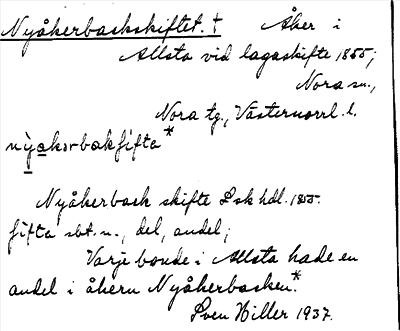 Nyåkerbackskiftet.† Åker i
Allsta vid lagaskifte 1855;
Nora sn.,
Nora tg., Västernorrl. l.
nyakərbakʃifta*
Nyåkerback skifte Lsk hdl. 1855.
ʃifta sbt. n., del, andel;
Varje bonde i Allsta hade en
andel i åkern Nyåkerbacken.*
Sven Hiller 1937.